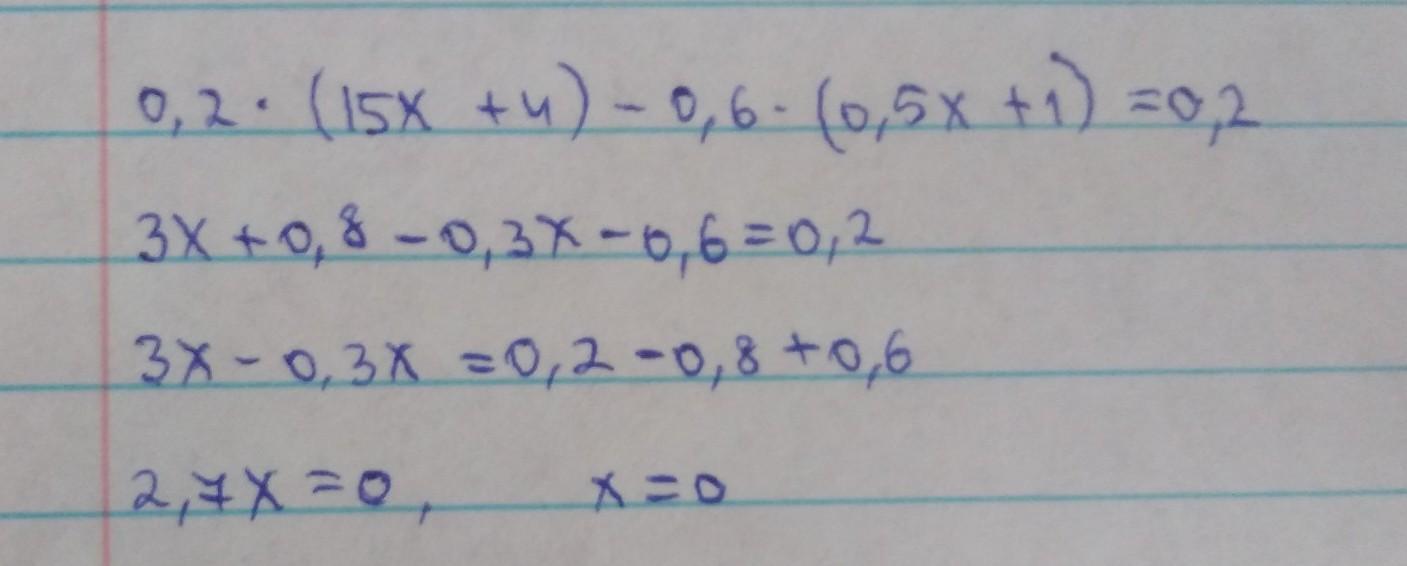 0,2 · (15x + 4) - 0,6 · (0,5x + 1) = 0,2
3x + 0,8 - 0,3x - 0,6 = 0,2
3x - 0,3x = 0,2 - 0,8 + 0,6
2,7x = 0, x = 0